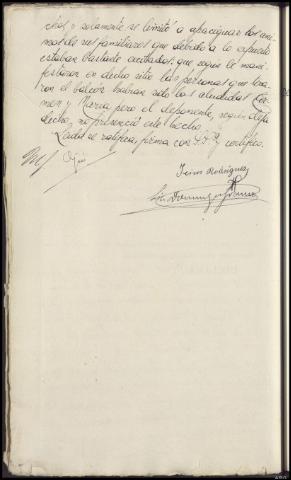 chos y solamente se limitó a apaciguar los áni-
mos de sus familiares que debido a lo expuesto
estaban bastante excitados; que según le mani-
festaron en dicho sitio las personas que toca-
ron el balcón habían sido las aludidas Car-
men y María pero el deponente, según deja
dicho, no presenció este hecho.
Leída se ratifica, firma con S.S. y certifico.
Jesús Rodríguez